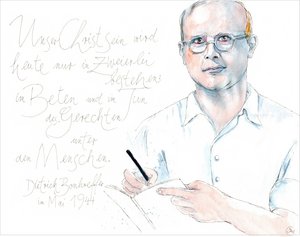 Unser Christsein wird
heute nur in Zweierlei
bestehen:
im Beten und im Tun
des Gerechten
unter
den Menschen.
Dietrich Bonhoeffer
im Mai 1944